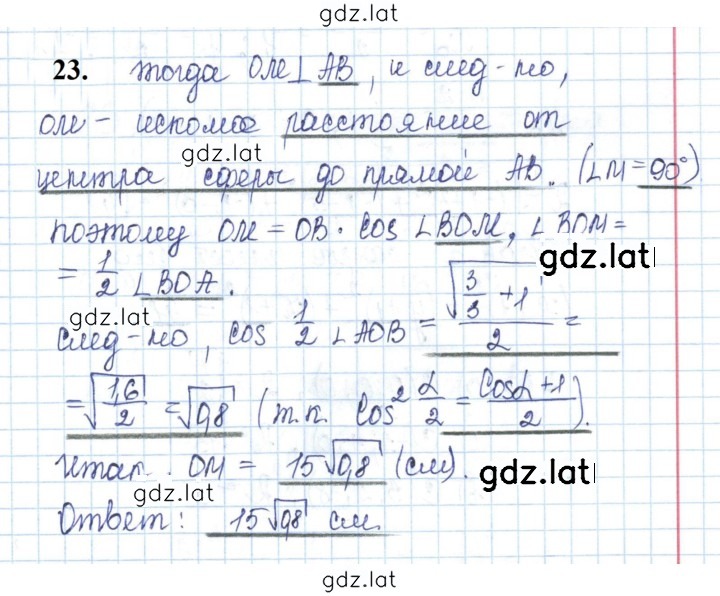 gdz.lat
23. тогда OM⊥AB, и след-но,
OM - искомое расстояние от
gdz.lat
центра сферы до прямой AB. (∠M=90°)
поэтому OM = OB · cos ∠BOM, ∠BOM=
gdz.lat
= 1/2 ∠BOA.
gdz.lat
след-но, cos 1/2 ∠AOB = √(3/3 + 1)/2 =
= √(1,6/2) = √0,8 (т.к. cos² α/2 = (cosα+1)/2).
Итак. OM = 15√0,8 (см).
gdz.lat
gdz.lat
Ответ: 15√0,8 см.
gdz.lat